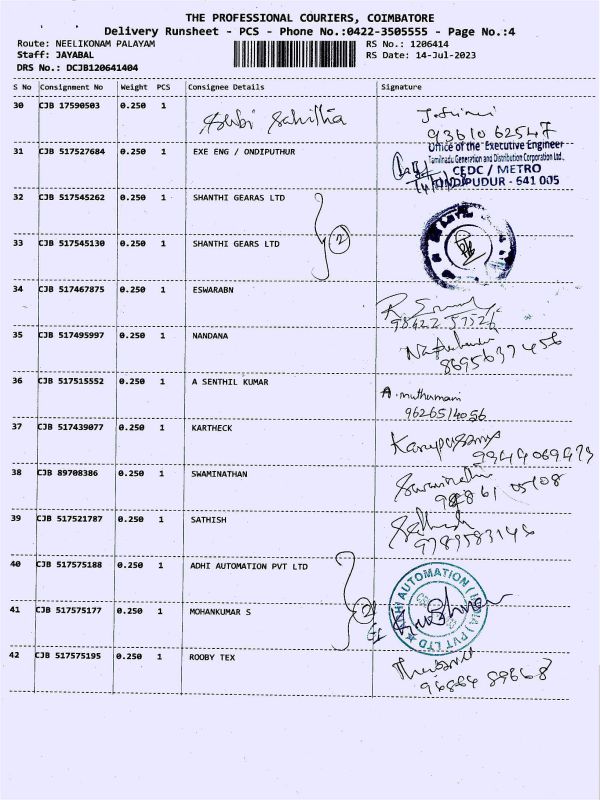 THE PROFESSIONAL COURIERS, COIMBATORE
Delivery Runsheet - PCS - Phone No.:0422-3505555 - Page No.:4
Route: NEELIKONAM PALAYAM
Staff: JAYABAL
DRS No.: DCJB120641404
RS No.: 1206414
RS Date: 14-Jul-2023
S No Consignment No Weight PCS Consignee Details Signature
30 CJB 17590503 0.250 1 Subi Sahitha
93610 62547
31 CJB 517527684 0.250 1 EXE ENG / ONDIPUTHUR
Office of the Executive Engineer
Tamilnadu Generation and Distribution Corporation Ltd.,
CEDC / METRO
ONDIPUDUR - 641 005
32 CJB 517545262 0.250 1 SHANTHI GEARAS LTD
33 CJB 517545130 0.250 1 SHANTHI GEARS LTD 2
34 CJB 517467875 0.250 1 ESWARABN
98422 57526
35 CJB 517495997 0.250 1 NANDANA
8695637456
36 CJB 517515552 0.250 1 A SENTHIL KUMAR A. muthumani
9626514056
37 CJB 517439077 0.250 1 KARTHECK
9344069473
38 CJB 89708386 0.250 1 SWAMINATHAN Swaminathan
39 CJB 517521787 0.250 1 SATHISH Sathish
9789583146
40 CJB 517575188 0.250 1 ADHI AUTOMATION PVT LTD
ADHI AUTOMATION (INDIA) PVT LTD
41 CJB 517575177 0.250 1 MOHANKUMAR S 2
42 CJB 517575195 0.250 1 ROOBY TEX
96864 89668